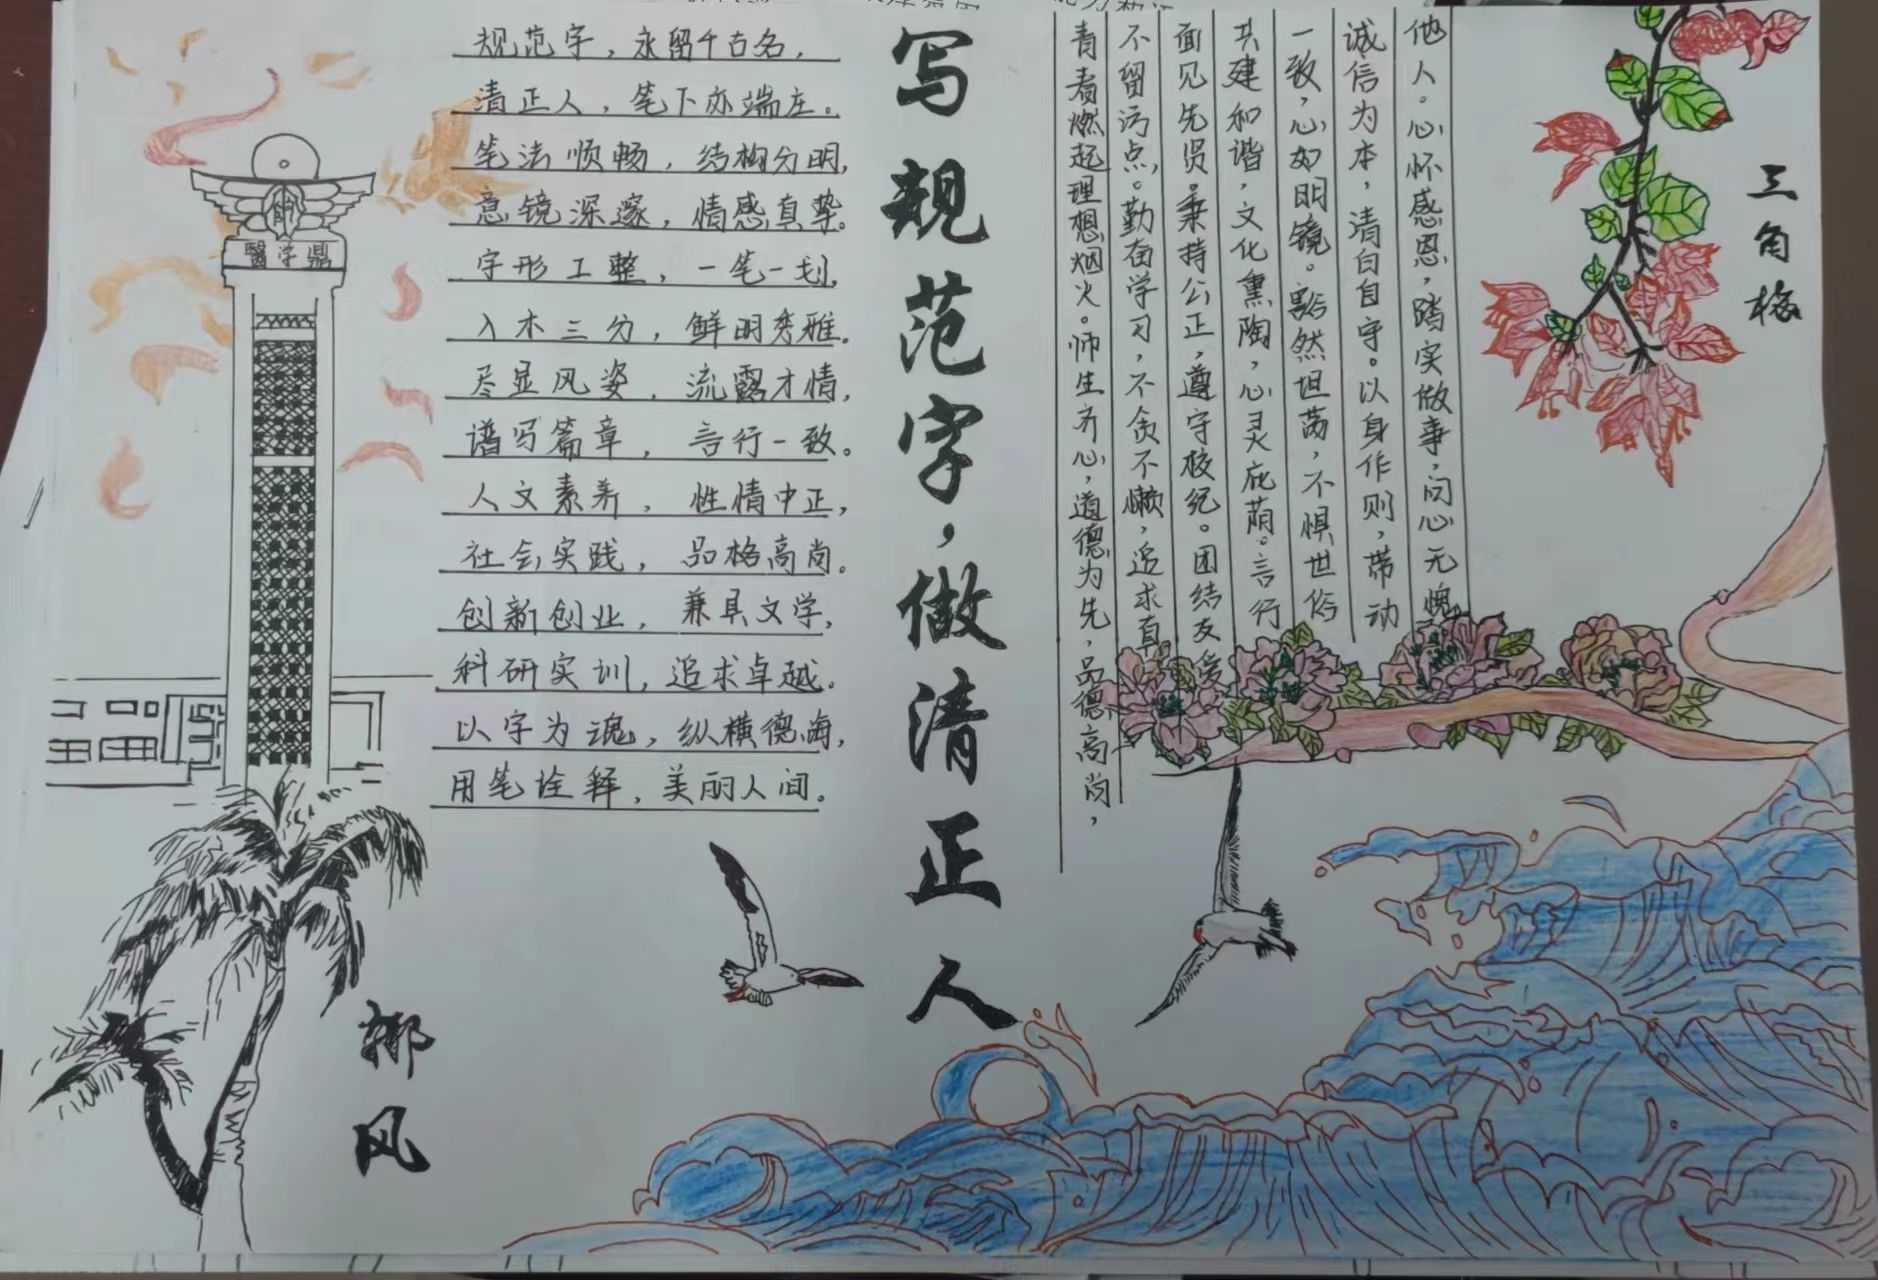 规范字，永留千古名，
清正人，笔下亦端庄。
笔法顺畅，结构分明，
意镜深邃，情感真挚。
字形工整，一笔一划，
入木三分，鲜明秀雅。
尽显风姿，流露才情，
谱写篇章，言行一致。
人文素养，性情中正，
社会实践，品格高尚。
创新创业，兼具文学，
科研实训，追求卓越。
以字为魂，纵横德海，
用笔诠释，美丽人间。
写规范字，做清正人
青春燃起理想烟火。师生齐心，道德为先，品德高尚，
不留污点。勤奋学习，不贪不懒，追求真
面见先贤。秉持公正，遵守校纪。团结友爱
共建和谐，文化熏陶，心灵庇荫。言行
一致，心如明镜。豁然坦荡，不惧世俗
诚信为本，清白自守。以身作则，带动
他人。心怀感恩，踏实做事，问心无愧
三角梅
醫学鼎
椰风